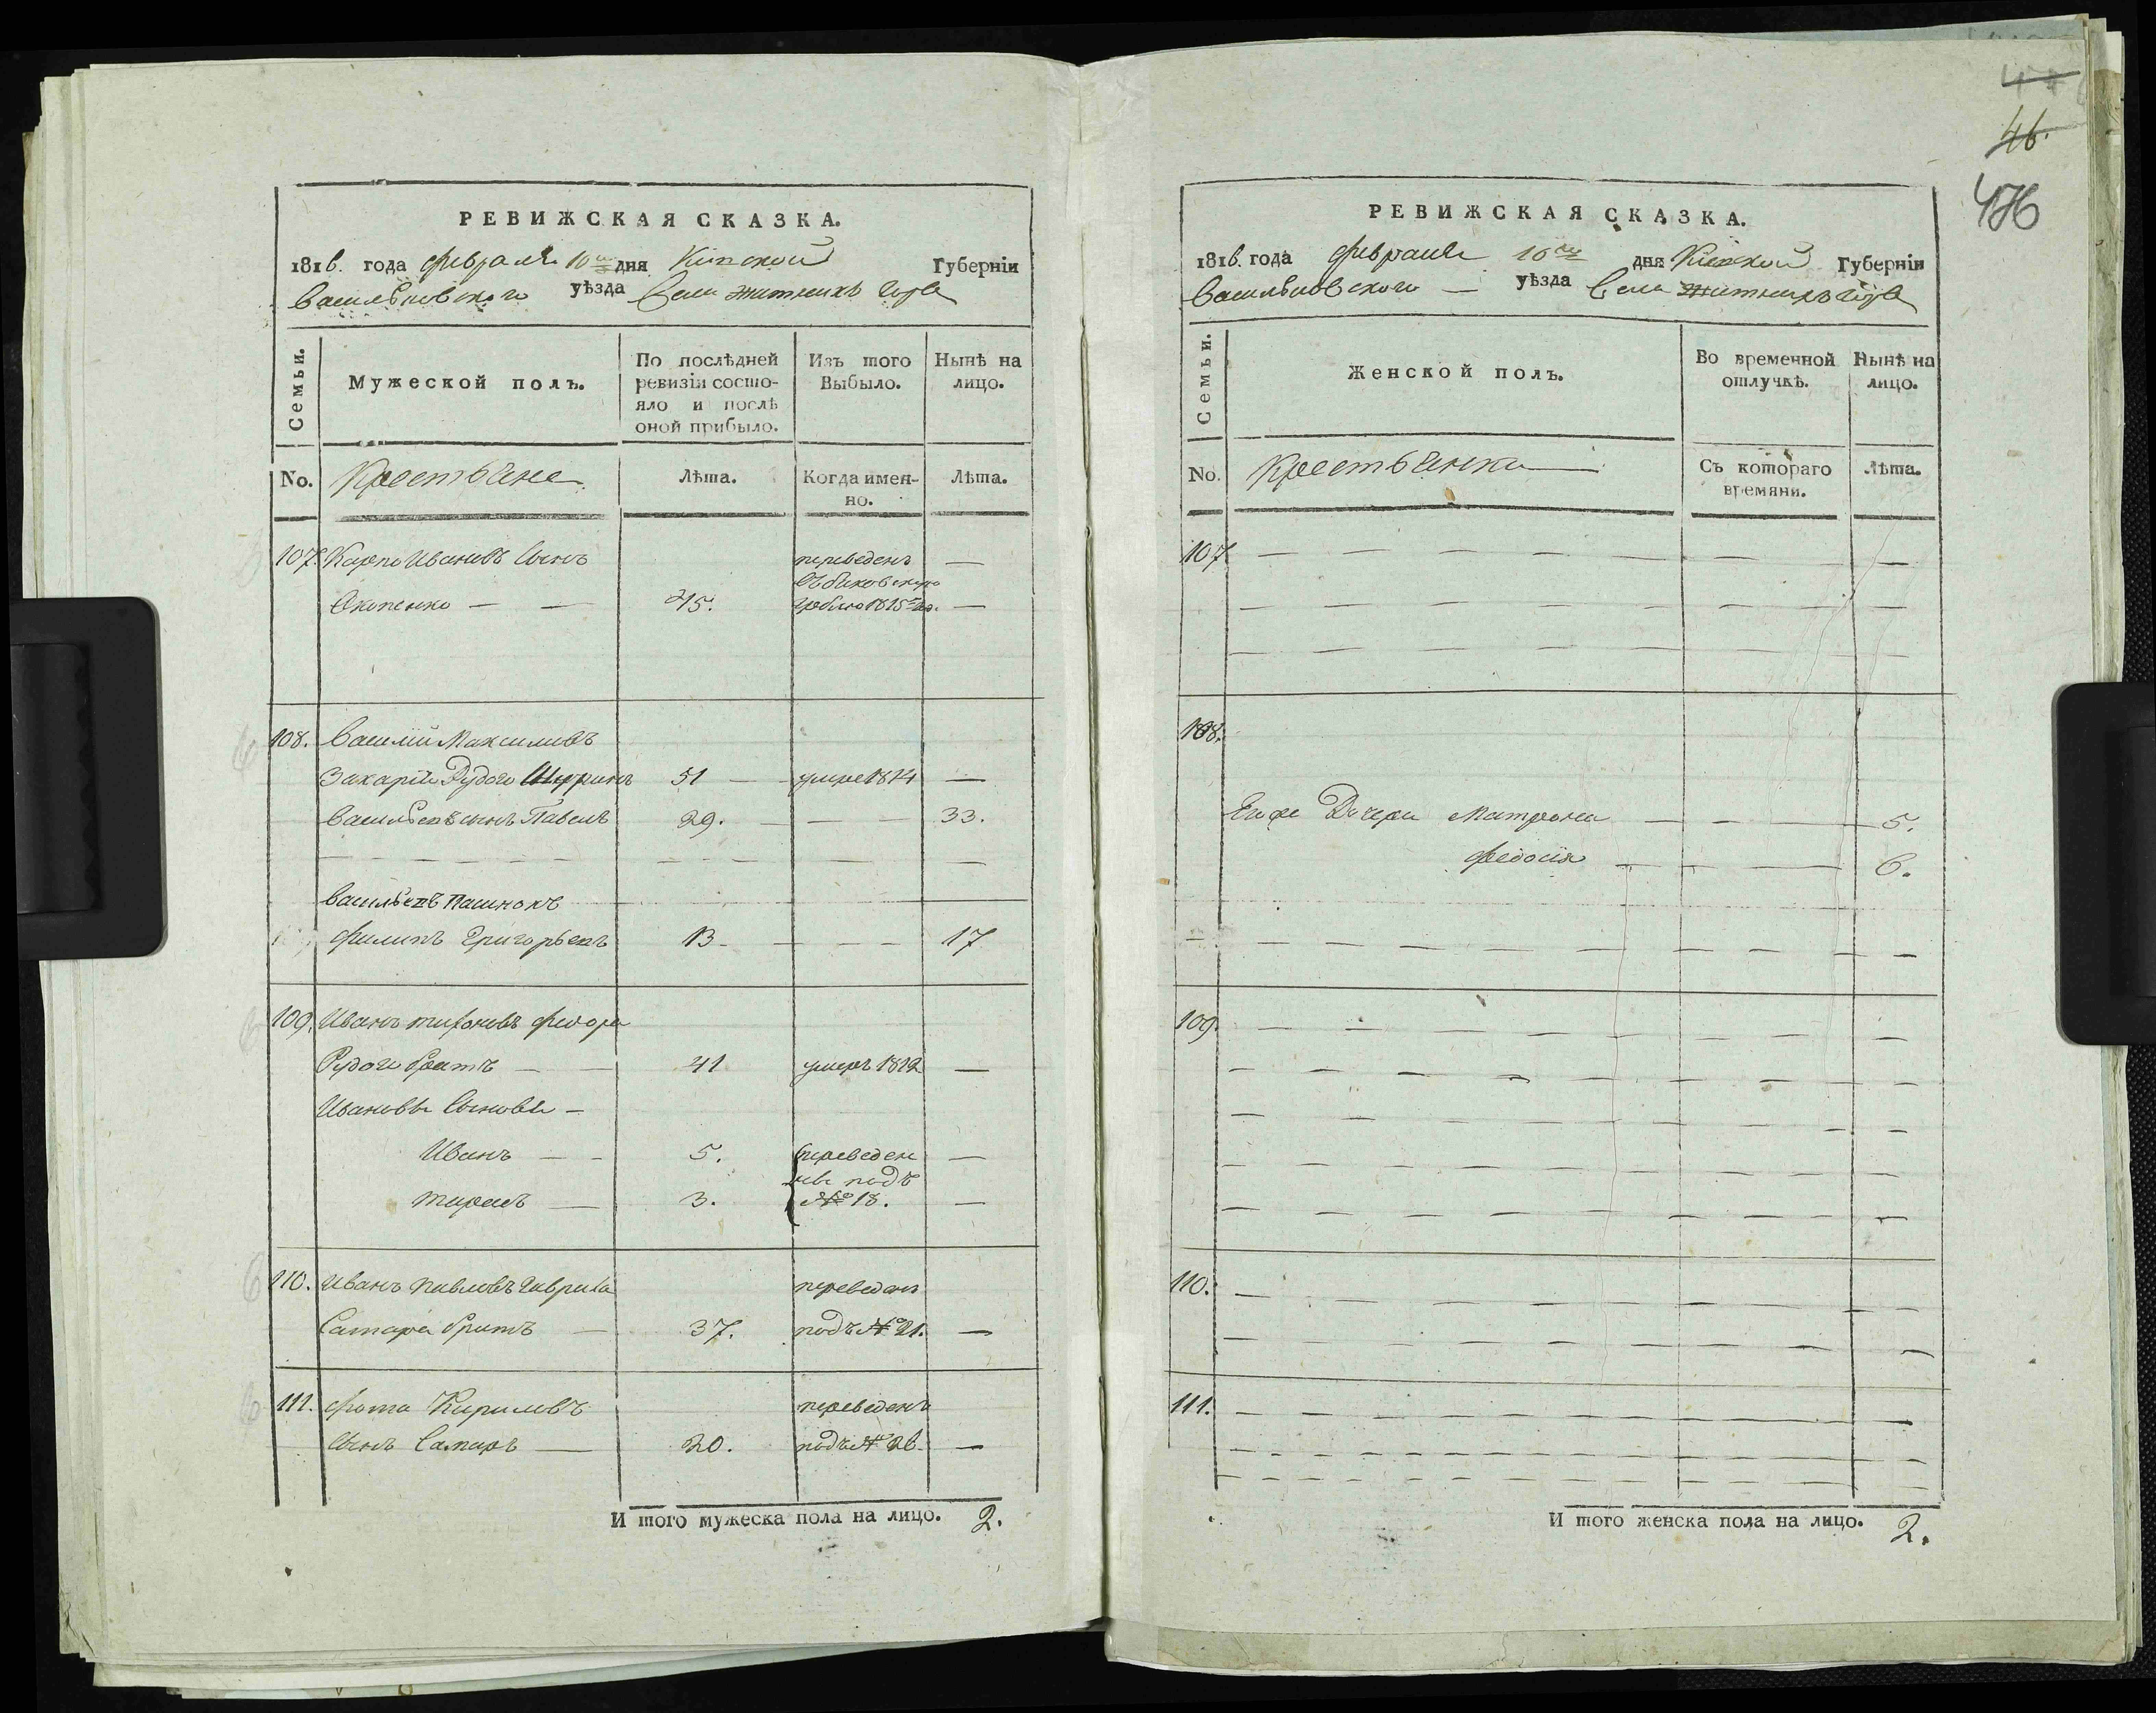 46.
476
РЕВИЖСКАЯ СКАЗКА.
1816. года февраля 10 дня Кіевской Губерніи
Васильковского уѣзда Села Житнихъ Горъ
Семьи.
Мужеской полъ.
По послѣдней ревизіи состояло и послѣ оной прибыло.
Изъ того Выбыло.
Нынѣ на лицо.
No. Крестьяне Лѣта. Когда именно. Лѣта.
107. Карпо Ивановъ Сынъ переведенъ —
Греблю 1815
108. Василий Максимовъ
Захарiя Рудого Шуринъ 51 — умре 1814 —
Васильевъ сынъ Павелъ 29. — — — 33.
Васильевъ Пасинокъ
Филипъ Григорьевъ 13 — — — 17
109. Иванъ Федора
Рудого братъ — — 41 умеръ 1812 —
Ивановы Сыновья —
Иванъ — — 5. переведе —
ны подъ
Тарасъ — 3. №18. —
110. Иванъ Павловъ Гаврила переведенъ
Самара братъ — 37. подъ №21. —
111. Фома Кириловъ переведенъ
сынъ Самаръ — 20. подъ №26 —
И того мужеска пола на лицо. 2.
РЕВИЖСКАЯ СКАЗКА.
1816. года февраля 10 дня Кіевской Губерніи
Васильковского — уѣзда Села Житнихъ Горъ
Семьи.
Женской полъ.
Во временной отлучкѣ.
Нынѣ на лицо.
No. Крестьянки — Съ котораго времяни. Лѣта.
107
108.
Его же Дочери Матрона — — — 5.
Федосія — — — 6.
109.
110.
111.
И того женска пола на лицо. 2.